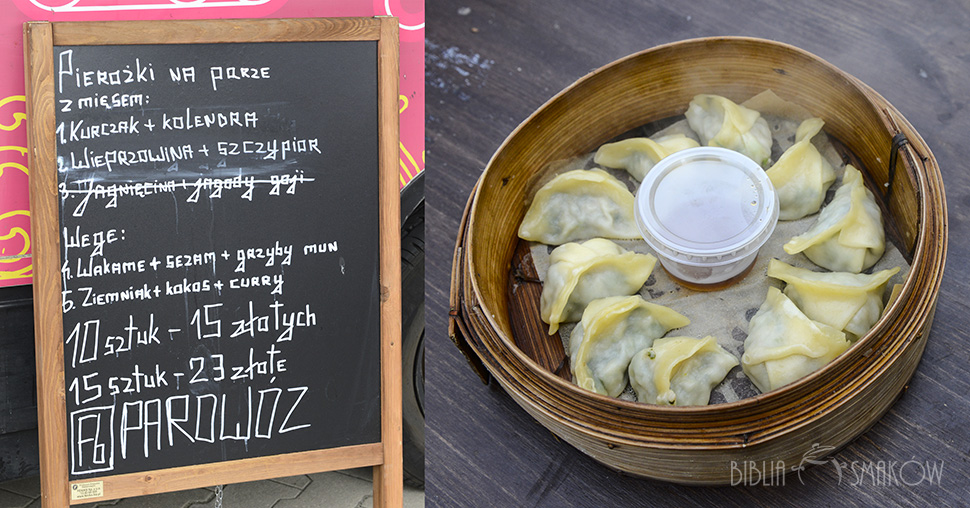 Pierożki na parze
z mięsem:
1. Kurczak + kolendra
2. Wieprzowina + szczypior
3. Jagnięcina + jagody goji
Wege:
4. Wakame + sezam + grzyby mun
5. Ziemniak + kokos + curry
10 sztuk - 15 złotych
15 sztuk - 23 złote
PAROWÓZ
BIBLIA SMAKÓW